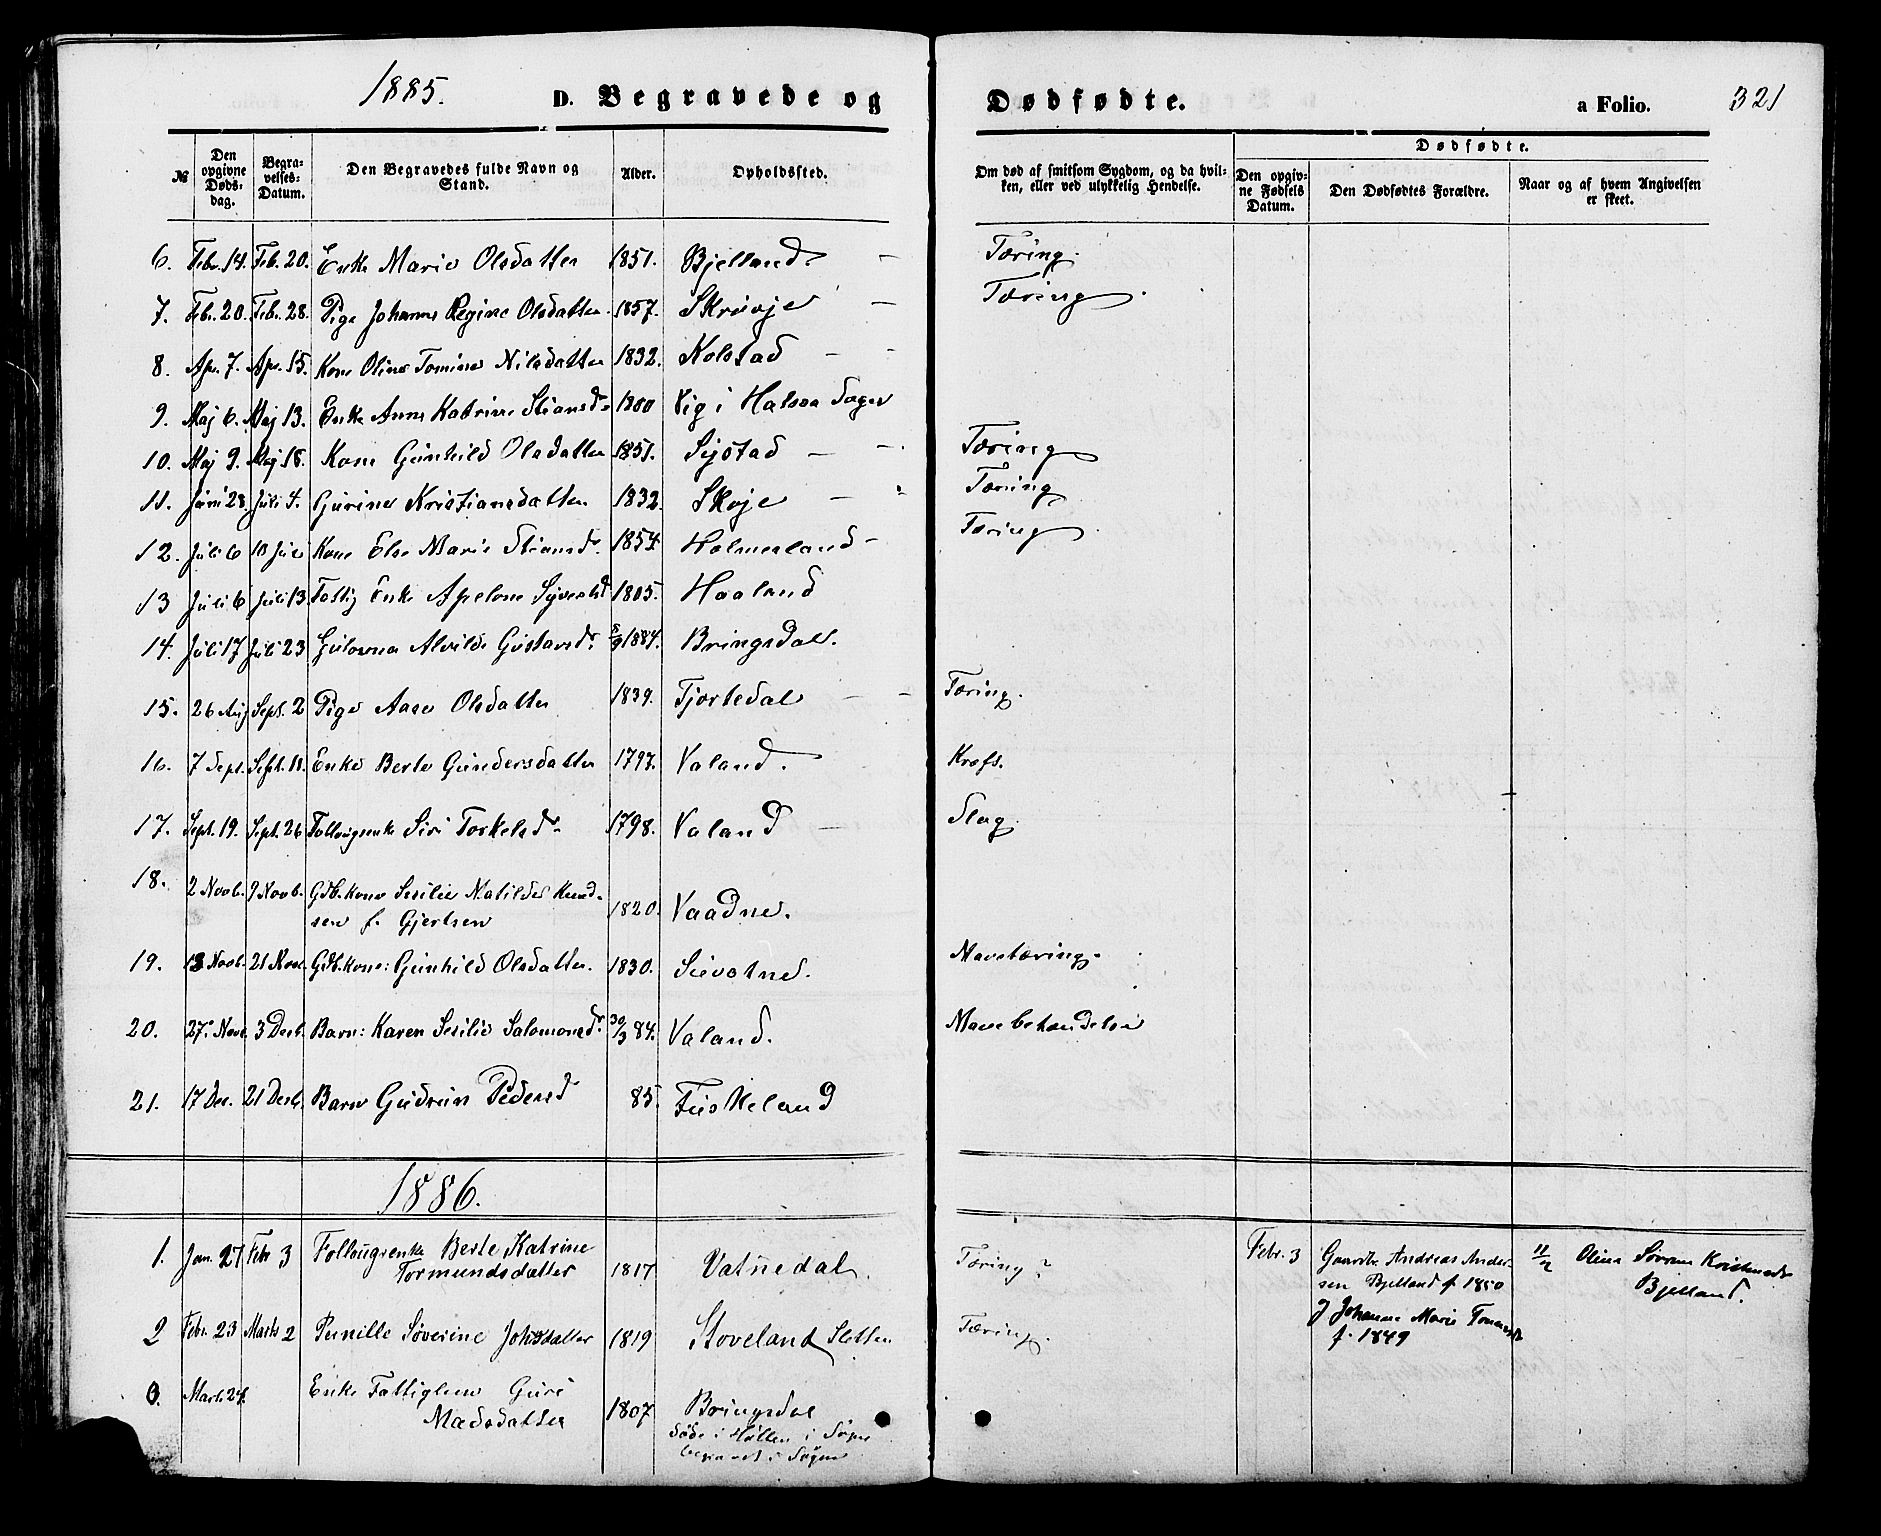 1885.
D. Begravede og
Dødfødte.
a Folio.
321
№
Den opgivne Døds-dag.
Begra-velses-Datum.
Den Begravedes fulde Navn og Stand.
Alder.
Opholdssted.
Om død af smitsom Sygdom, og da hvil-ken, eller ved ulykkelig Hendelse.
Dødfødte.
Den opgiv-ne Fødsels Datum.
Den Dødfødtes Forældre.
Naar og af hvem Angivelsen er skeet.
6. Febr. 14. Feb. 20. Enke Marie Olsdatter 1851. Bjelland. Tæring.
7. Feb. 20. Feb. 28. Pige Johanne Regine Olsdatter 1857. Tæring.
8. Apr. 7. Apr. 15. Kone Oline Tomine Nilsdatter 1832. Kolstad
9. Maj 6. Maj 13. Enke Anne Katrine Stiansd. 1800 Vig i Halsaa Sogn
10. Maj 9. Maj 18. Kone Gunhild Olsdatter 1851. Tæring
11. Juni 28. Juli 4. Gurine Kristiansdatter 1832. Skoje Tæring
12. Juli 6 10 Juli Kone Else Marie Stiansd. 1854. Holmesland Tæring
13 Juli 6 Juli 13 Fattig Enke Apelone Syvertsd 1805. Haaland
14. Juli 17 Juli 23 Alvilde Gustavsd. 5/9 1884. Bringsdal.
15. 26 Aug Sept. 2 Pige Aase Olsdatter 1839. Tjortedal Tæring.
16. 7 Sept. Sept. 11. Enke Berte Gundersdatter 1797. Valand. Kræfs.
17. Sept. 19. Sept. 26 Follaugsenke Siri Torkelsd. 1798. Valand Slag
18. 2 Novb. 9 Novb. Gdb. kone Sesilie Matilde Knud-
sen f. Gjertsen 1820. Vaadne.
19. 13 Novb. 21 Nov. Gdb. kone: Gunhild Olsdatter. 1830. Mavetæring.
20. 27. Nov. 3 Decb. Barn: Karen Sesilie Salomonsd. 30/3 84. Valand. Mavebetændelse
21. 17 Dec. 21 Decb. Barn Gudrun Pedersd 85. Fuskeland
1886.
1. Jan. 27 Febr 3 Follaugsenke Berte Katrine
Tormundsdatter 1817 Vatnedal. Tæring?
Febr. 3 Gaardbr. Andreas Ander-
sen Bjelland f. 1850
og Johanne Marie Tomasd.
f. 1849
11/2 Oline Sørine Kristensd.
Bjelland.
2 Febr. 23 Marts 2 Pernille Søverine Johsdatter 1819 Stoveland Sletten Tæring.
3. Marts 24. Enke Fattiglem Guri
Madsdatter 1807 Bringsdal
døde i Høllen i Søgne
begravet i Søgne